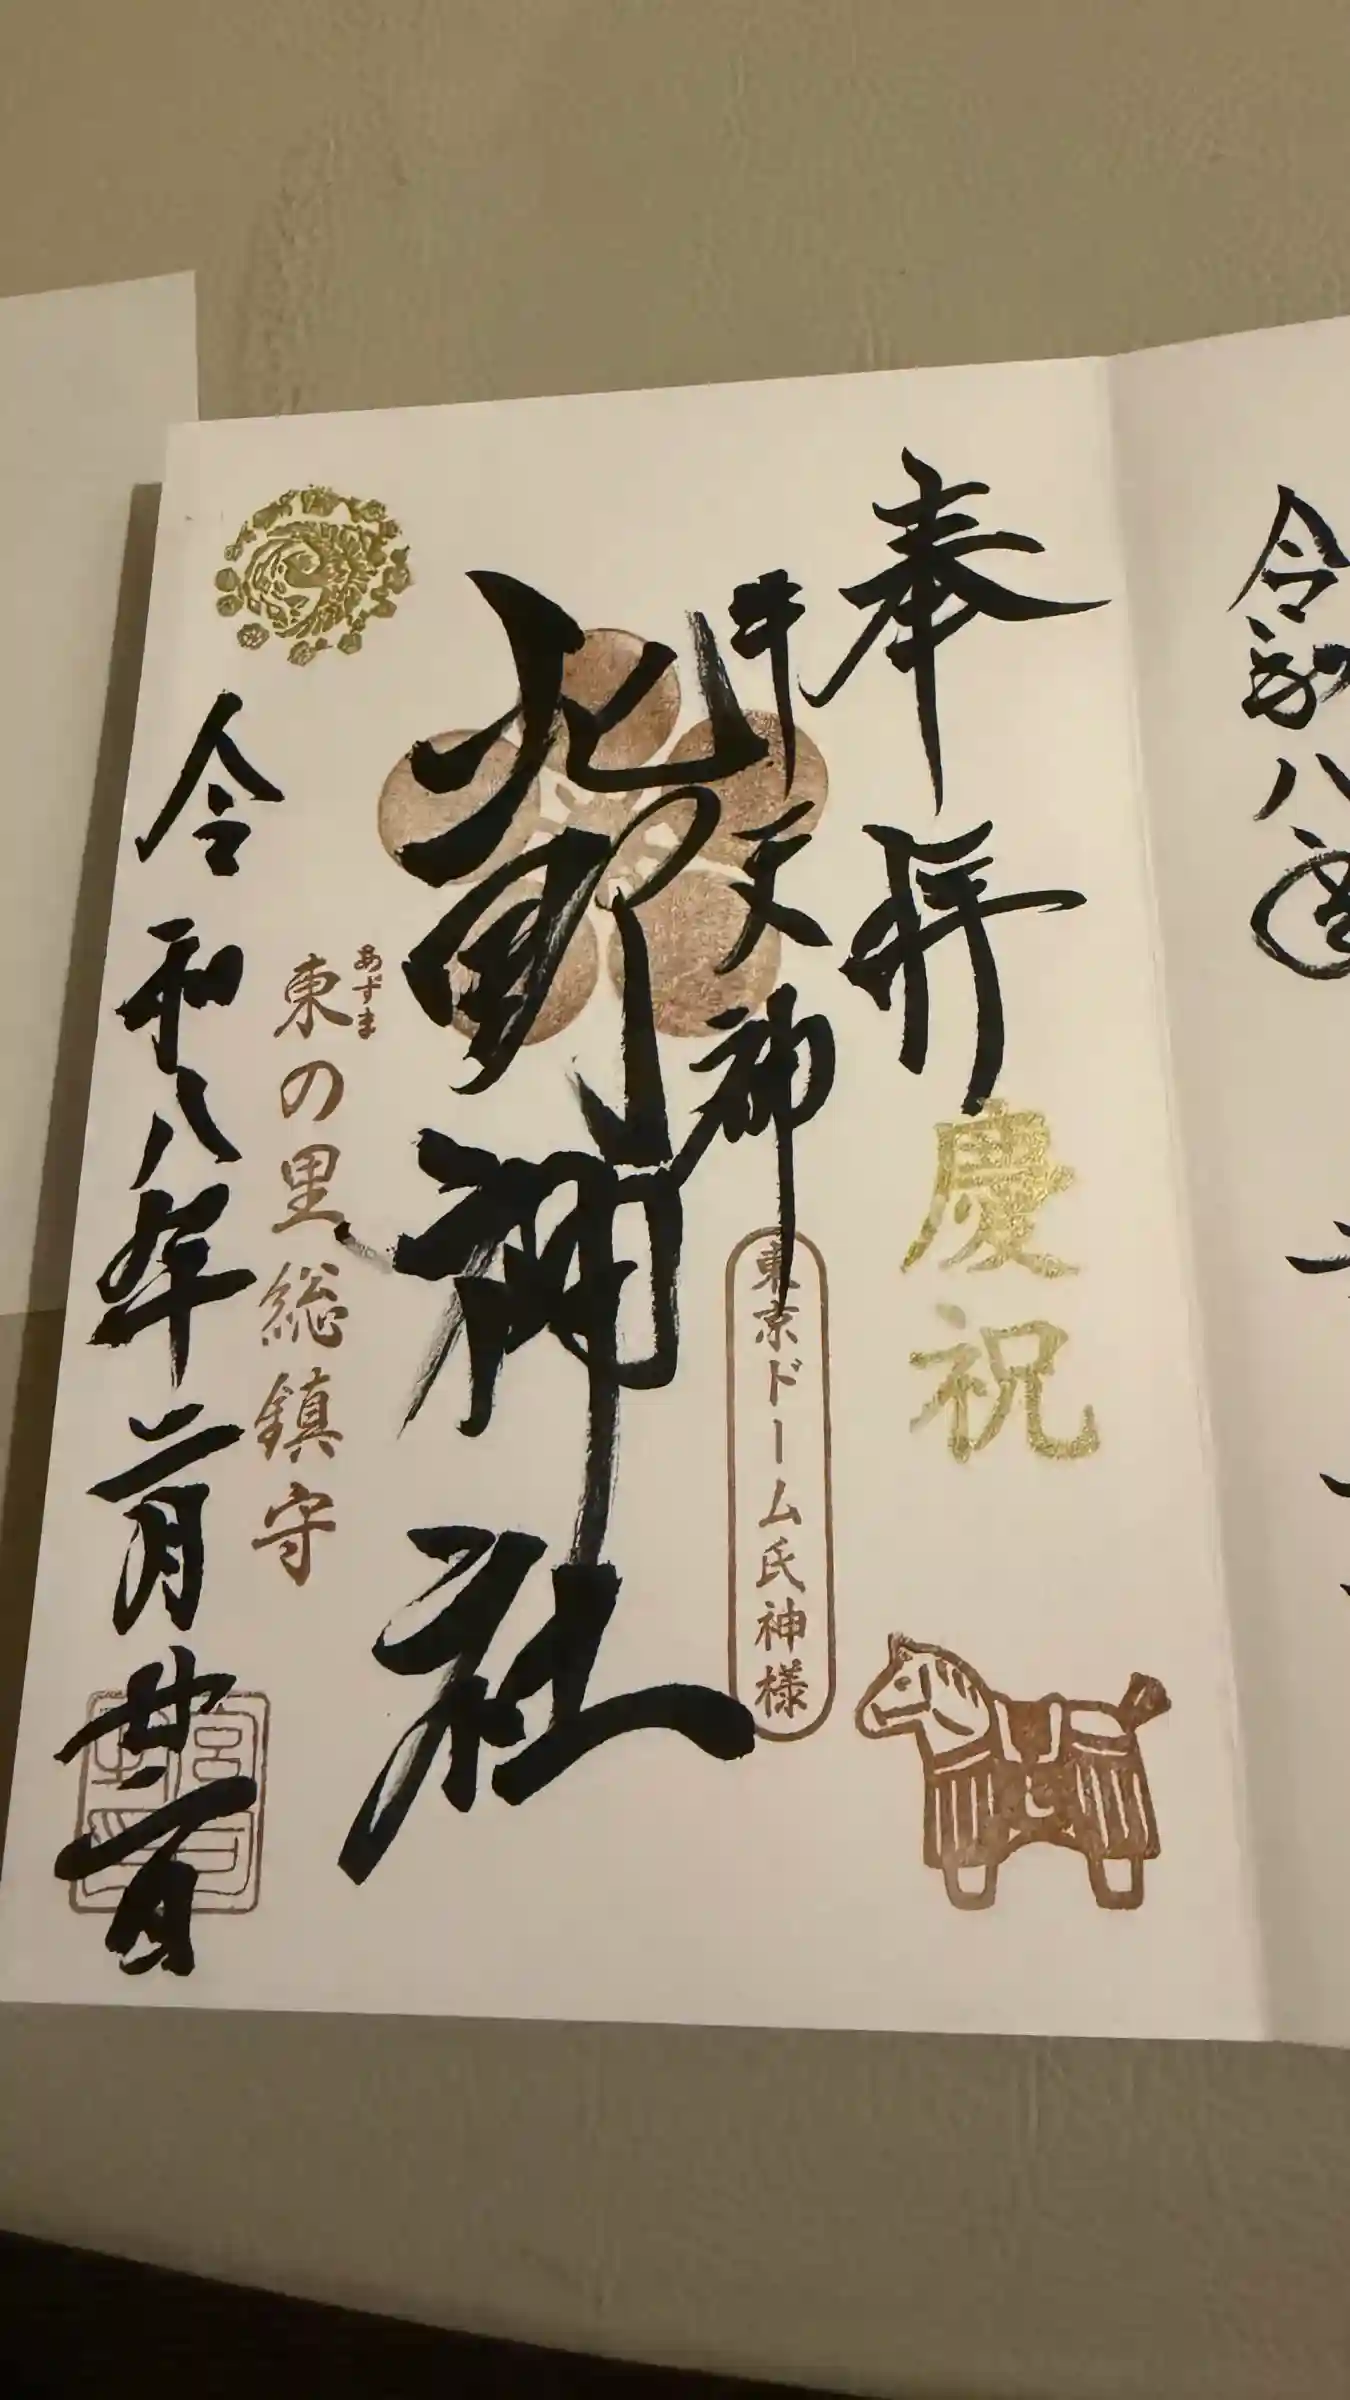 奉拝
慶祝
牛天神
東京ドーム氏神様
北野神社
あずま
東の里総鎮守
令和八年二月廿二日
令和八